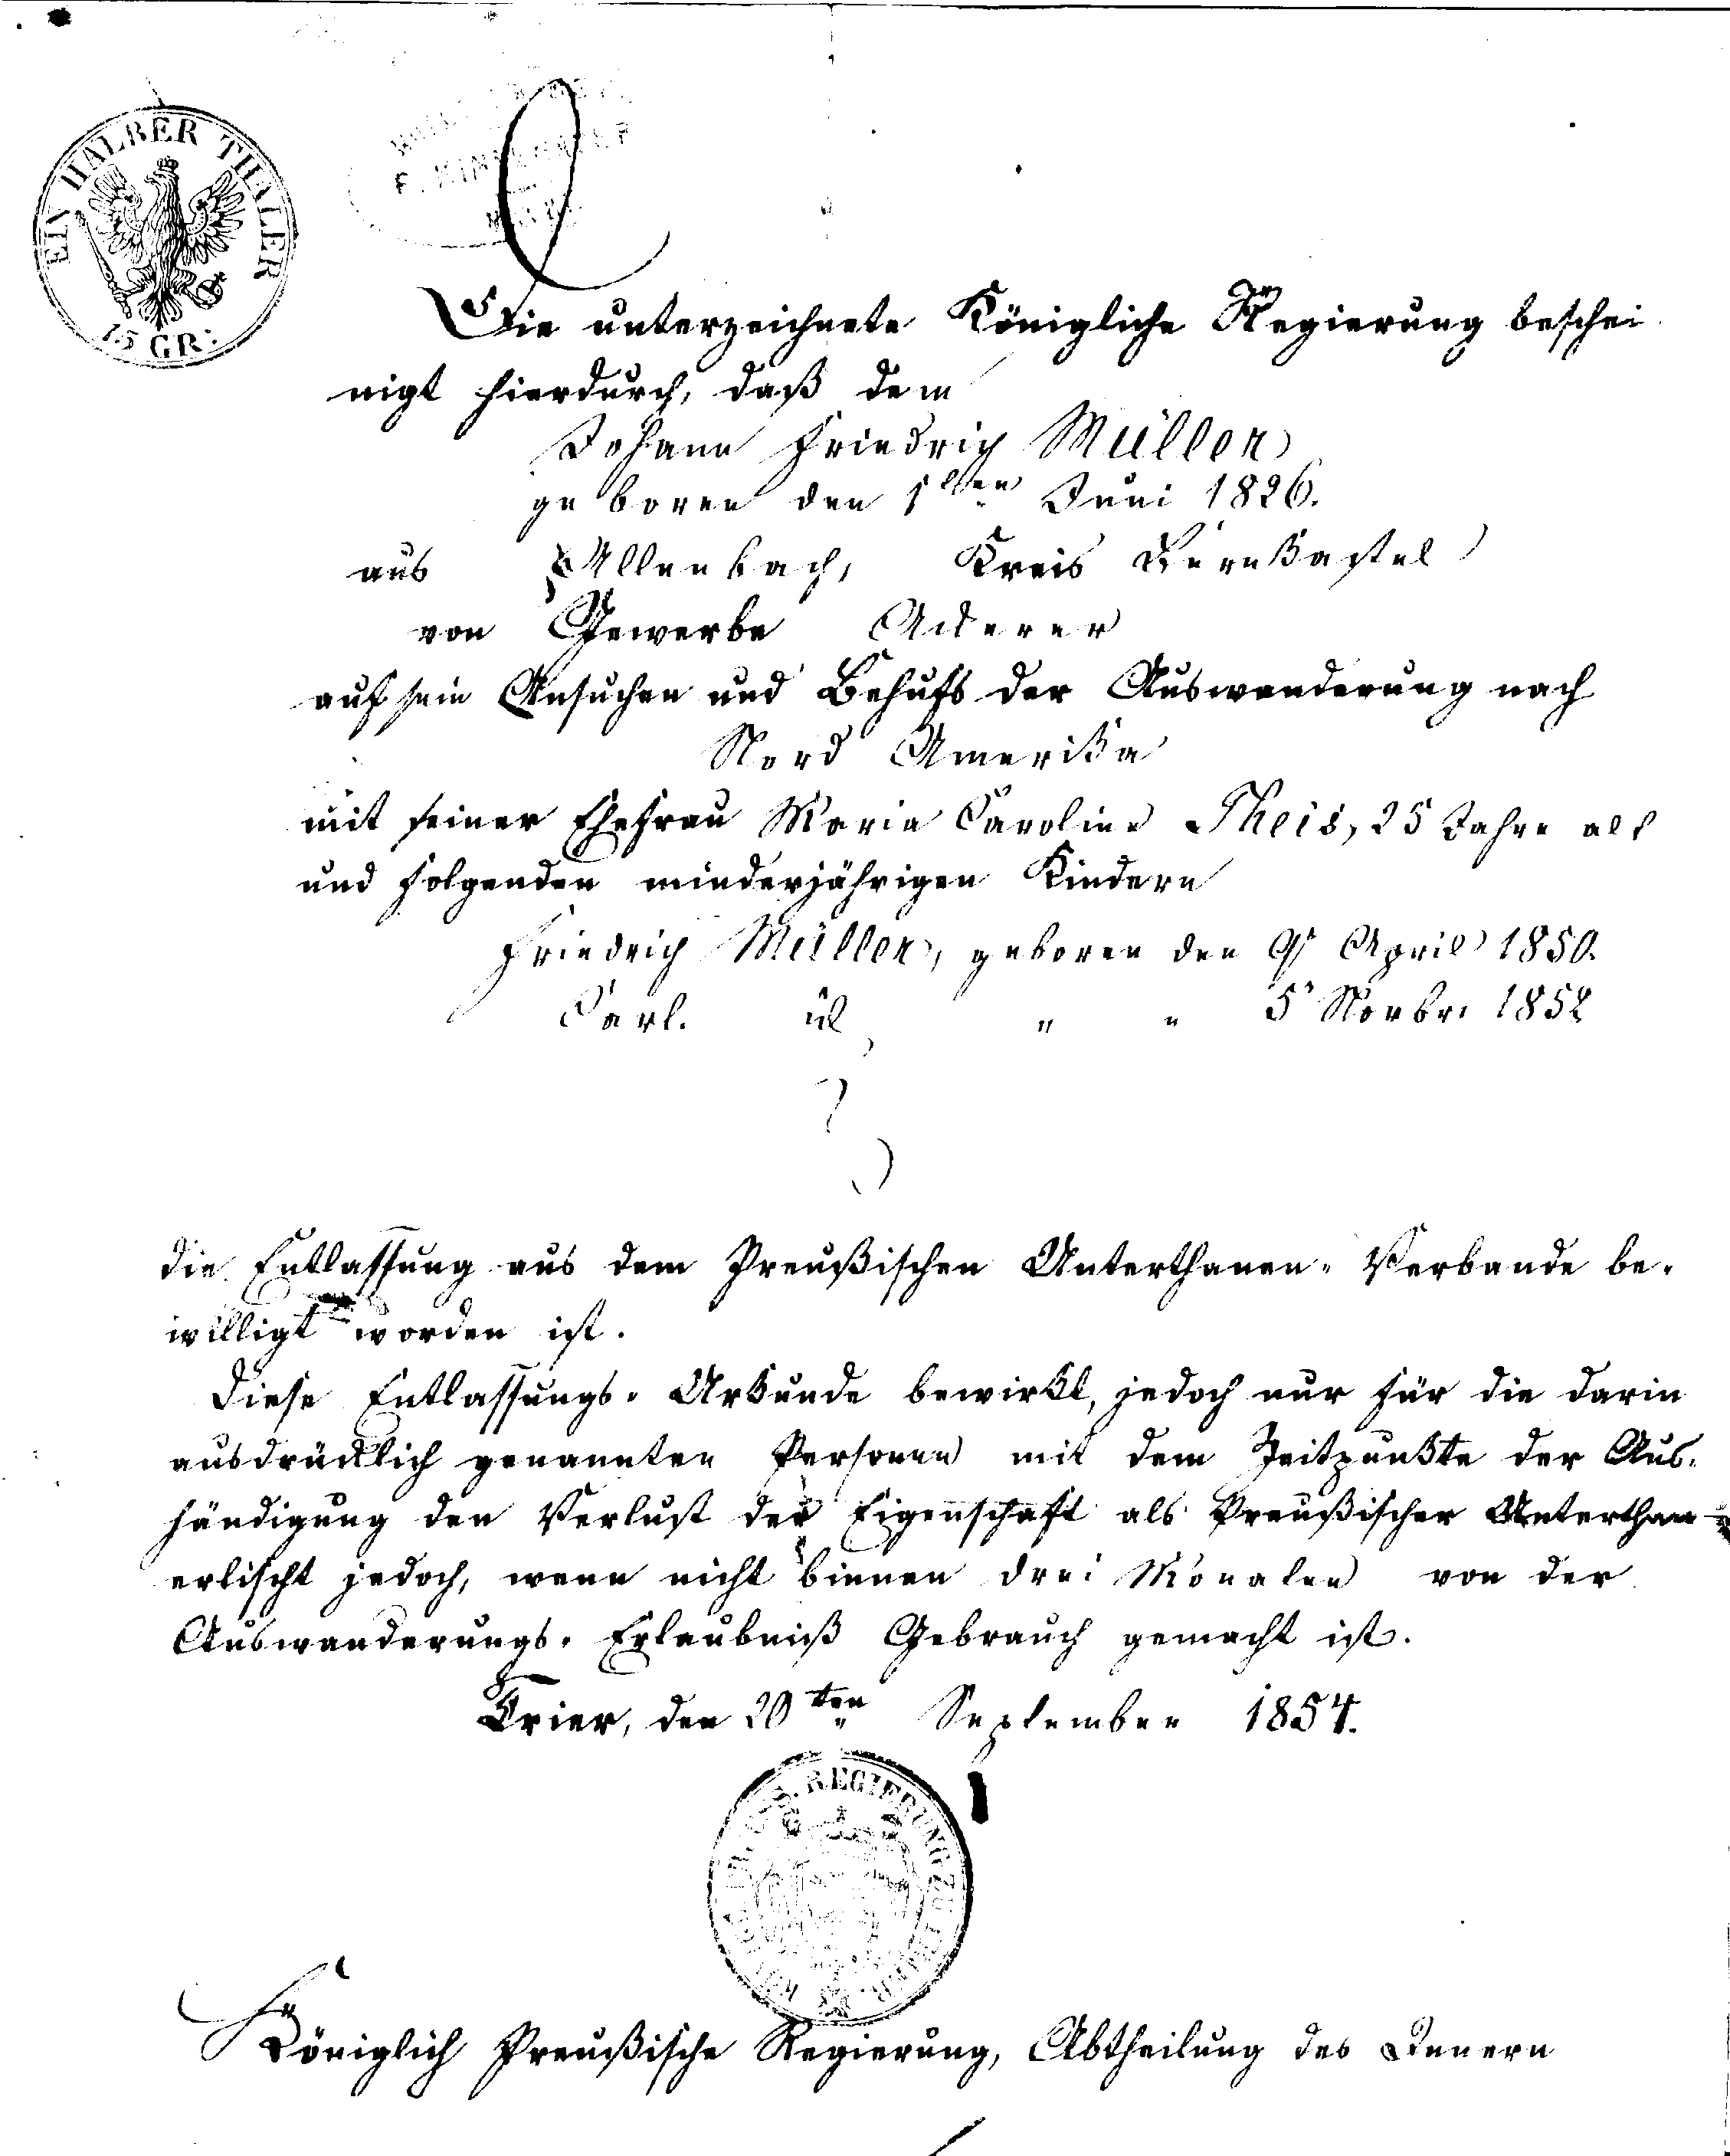 EIN HALBER THALER
15 GR:
Die unterzeichnete Königliche Regierung beschei
nigt hierdurch, daß dem
Johann Friedrich Müller
geboren den 1ten Juni 1826.
aus Allenbach, Kreis Bernkastel
von Gewerbe Ackerer
auf sein Ansuchen und Behufs der Auswanderung nach
Nord Amerika
mit seiner Ehefrau Maria Caroline Theis, 25 Jahre alt
und folgenden minderjährigen Kindern
Friedrich Müller, geboren den 9t April 1850.
Carl. id " " 5t Novbr. 1852
die Entlassung aus dem Preußischen Unterthanen-Verbande be-
willigt worden ist.
Diese Entlassungs-Urkunde bewirkt, jedoch nur für die darin
ausdrücklich genannten Personen mit dem Zeitpunkte der Aus-
händigung den Verlust der Eigenschaft als Preußischer Unterthan
erlischt jedoch, wenn nicht binnen drei Monaten von der
Auswanderungs-Erlaubniß Gebrauch gemacht ist.
Trier, den 20ten September 1854.
REGIERUNG ZU TRIER
Königlich Preußische Regierung, Abtheilung des Innern